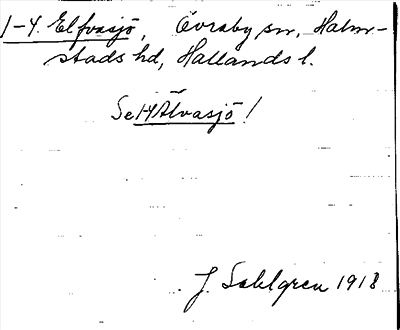 1-4. Elfvasjö, Övraby sn, Halm-
stads hd, Hallands l.
Se 1-4 Älvasjö!
J. Sahlgren 1918